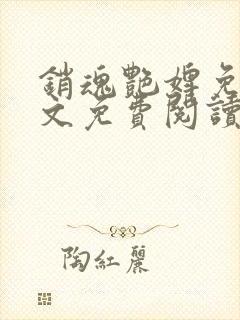 銷魂艷婢免
文免費閱讀
陶紅麗